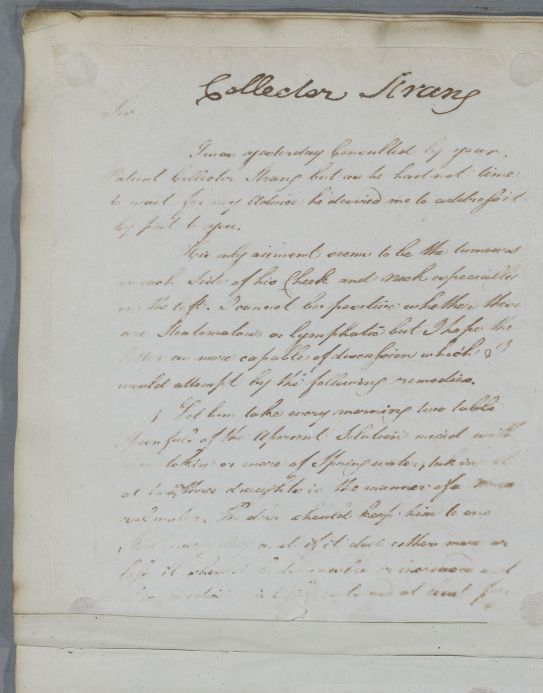 Collector Strang
Sir
I was yesterday Consulted by your
Patient Collector Strang but as he had not time
to wait for my advice he desired me to address it
by post to you.
His only ailment seems to be the tumours
on each Side of his Cheek and neck especially
on the left. I cannot be positive whether these
are Steatomatous or lymphatic but I hope the
latter as more capable of discussion which I
would attempt by the following remedies.
1 Let him take every morning two table
Spoonfuls of the Aperient Solution mixed with
or more of Spring water, taken
at two or three draughts in the manner of a
water. The dose should keep him to one
Stool every day and if it does either more or
less it should be diminished or increased and
at least for